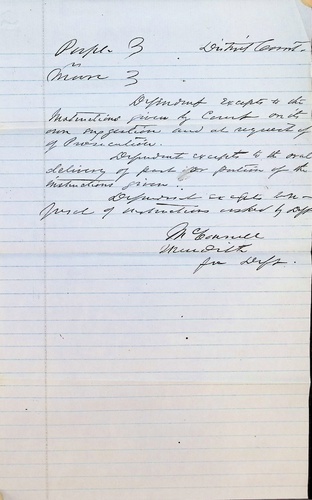 People } District Court
vs
Moore }
Defendant excepts to the
instructions given by Court on its
own suggestion and at request of
of Prosecution.
Defendant excepts to the oral
delivery of part or portion of the
instructions given.
Defendant excepts to
of instructions asked by Deft
McConnell
Meredith
for Deft.